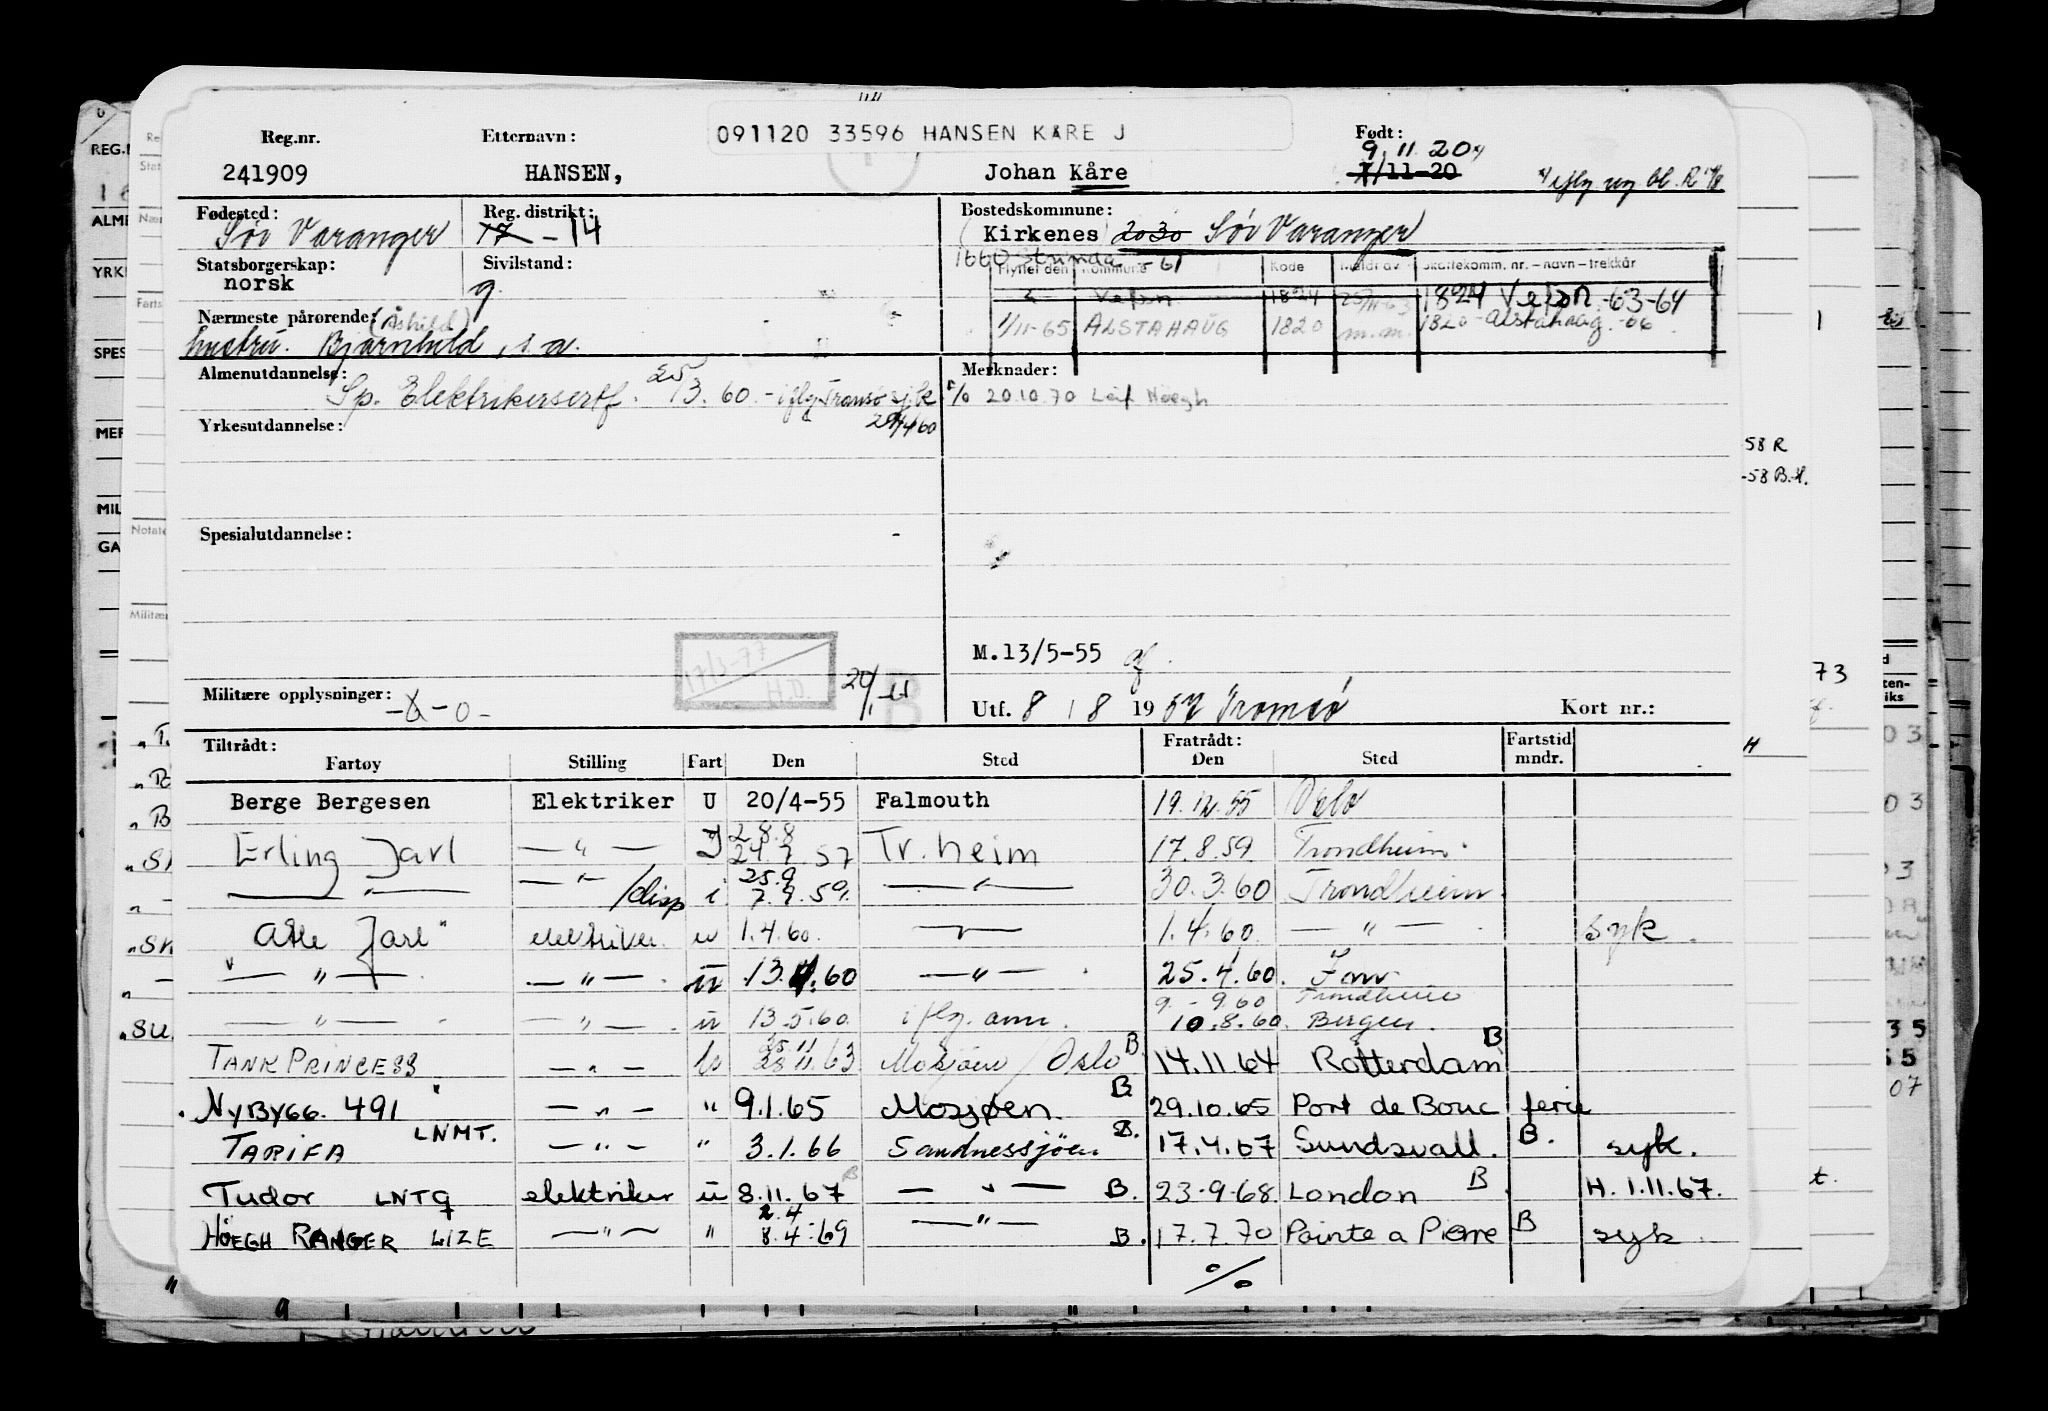 Reg.nr. Etternavn: 091120 33596 HANSEN KÅRE J Født:
9.11.20
241909 HANSEN, Johan Kåre 7/11-20
Fødested: Reg. distrikt: Bostedskommune:
Sør Varanger 17 - 14 Kirkenes 2030 Sør Varanger
Statsborgerskap: Sivilstand: 1660 Strinda -61
norsk g. Flyttet den Kommune Kode Meldt av Skattekomm. nr. – navn – trekkår
Vefsn 1824 25/11-63 1824 Vefsn -63-64
Nærmeste pårørende: (Åshild) 1/11-65 ALSTAHAUG 1820 m.m. 1820 - Alstahaug. -66
hustru. Bjarnhild, s.a.
Almenutdannelse: Merknader:
Sp. Elektrikersertf. 25/3.60. - iflg Tromsø sj.k % 20.10.70 Leif Höegh
Yrkesutdannelse: 29/4 60
Spesialutdannelse:
M.13/5-55
17/3-77
H.D.
Militære opplysninger: -0- B Utf. 8 / 8 1957 Tromsø Kort nr.:
Tiltrådt: Fratrådt: Fartstid
Fartøy Stilling Fart Den Sted Den Sted mndr.
Berge Bergesen Elektriker U 20/4-55 Falmouth 19.12.55 Oslo
2 8.8
Erling Jarl — " — I 24.7.57 Tr.heim 17.8.59 Trondheim
25.9
— " — — " — /disp i 7.9.59. — " — 30.3.60 Trondheim.
Atle Jarl elektriker u 1.4.60. — " — 1.4.60. — " — syk.
— " — — " — u 13.4.60 — " — 25.4.60.
9.-9.60 Trondheim
— " — — " — u 13.5.60. iflg. ann. 10.8.60. Bergen.
25 11
TANK PRINCESS — " — 28 11.63 Mosjøen / Oslo B 14.11.64 Rotterdam B
NYBYGG. 491 — " — " 9.1.65 Mosjøen. B. 29.10.65 Port de Bouc ferie
TARIFA LNMT. — " — " 3.1.66 Sandnessjøen B. 17.4.67 Sundsvall. B. syk.
Tudor LNTQ elektriker u 8.11.67 B — " — B. 23-9-68. London B H. 1.11.67.
2.4
HÖEGH RANGER LIZE — " — " 8.4.69 — " — B. 17.7.70 Pointe a Pierre B syk.
%